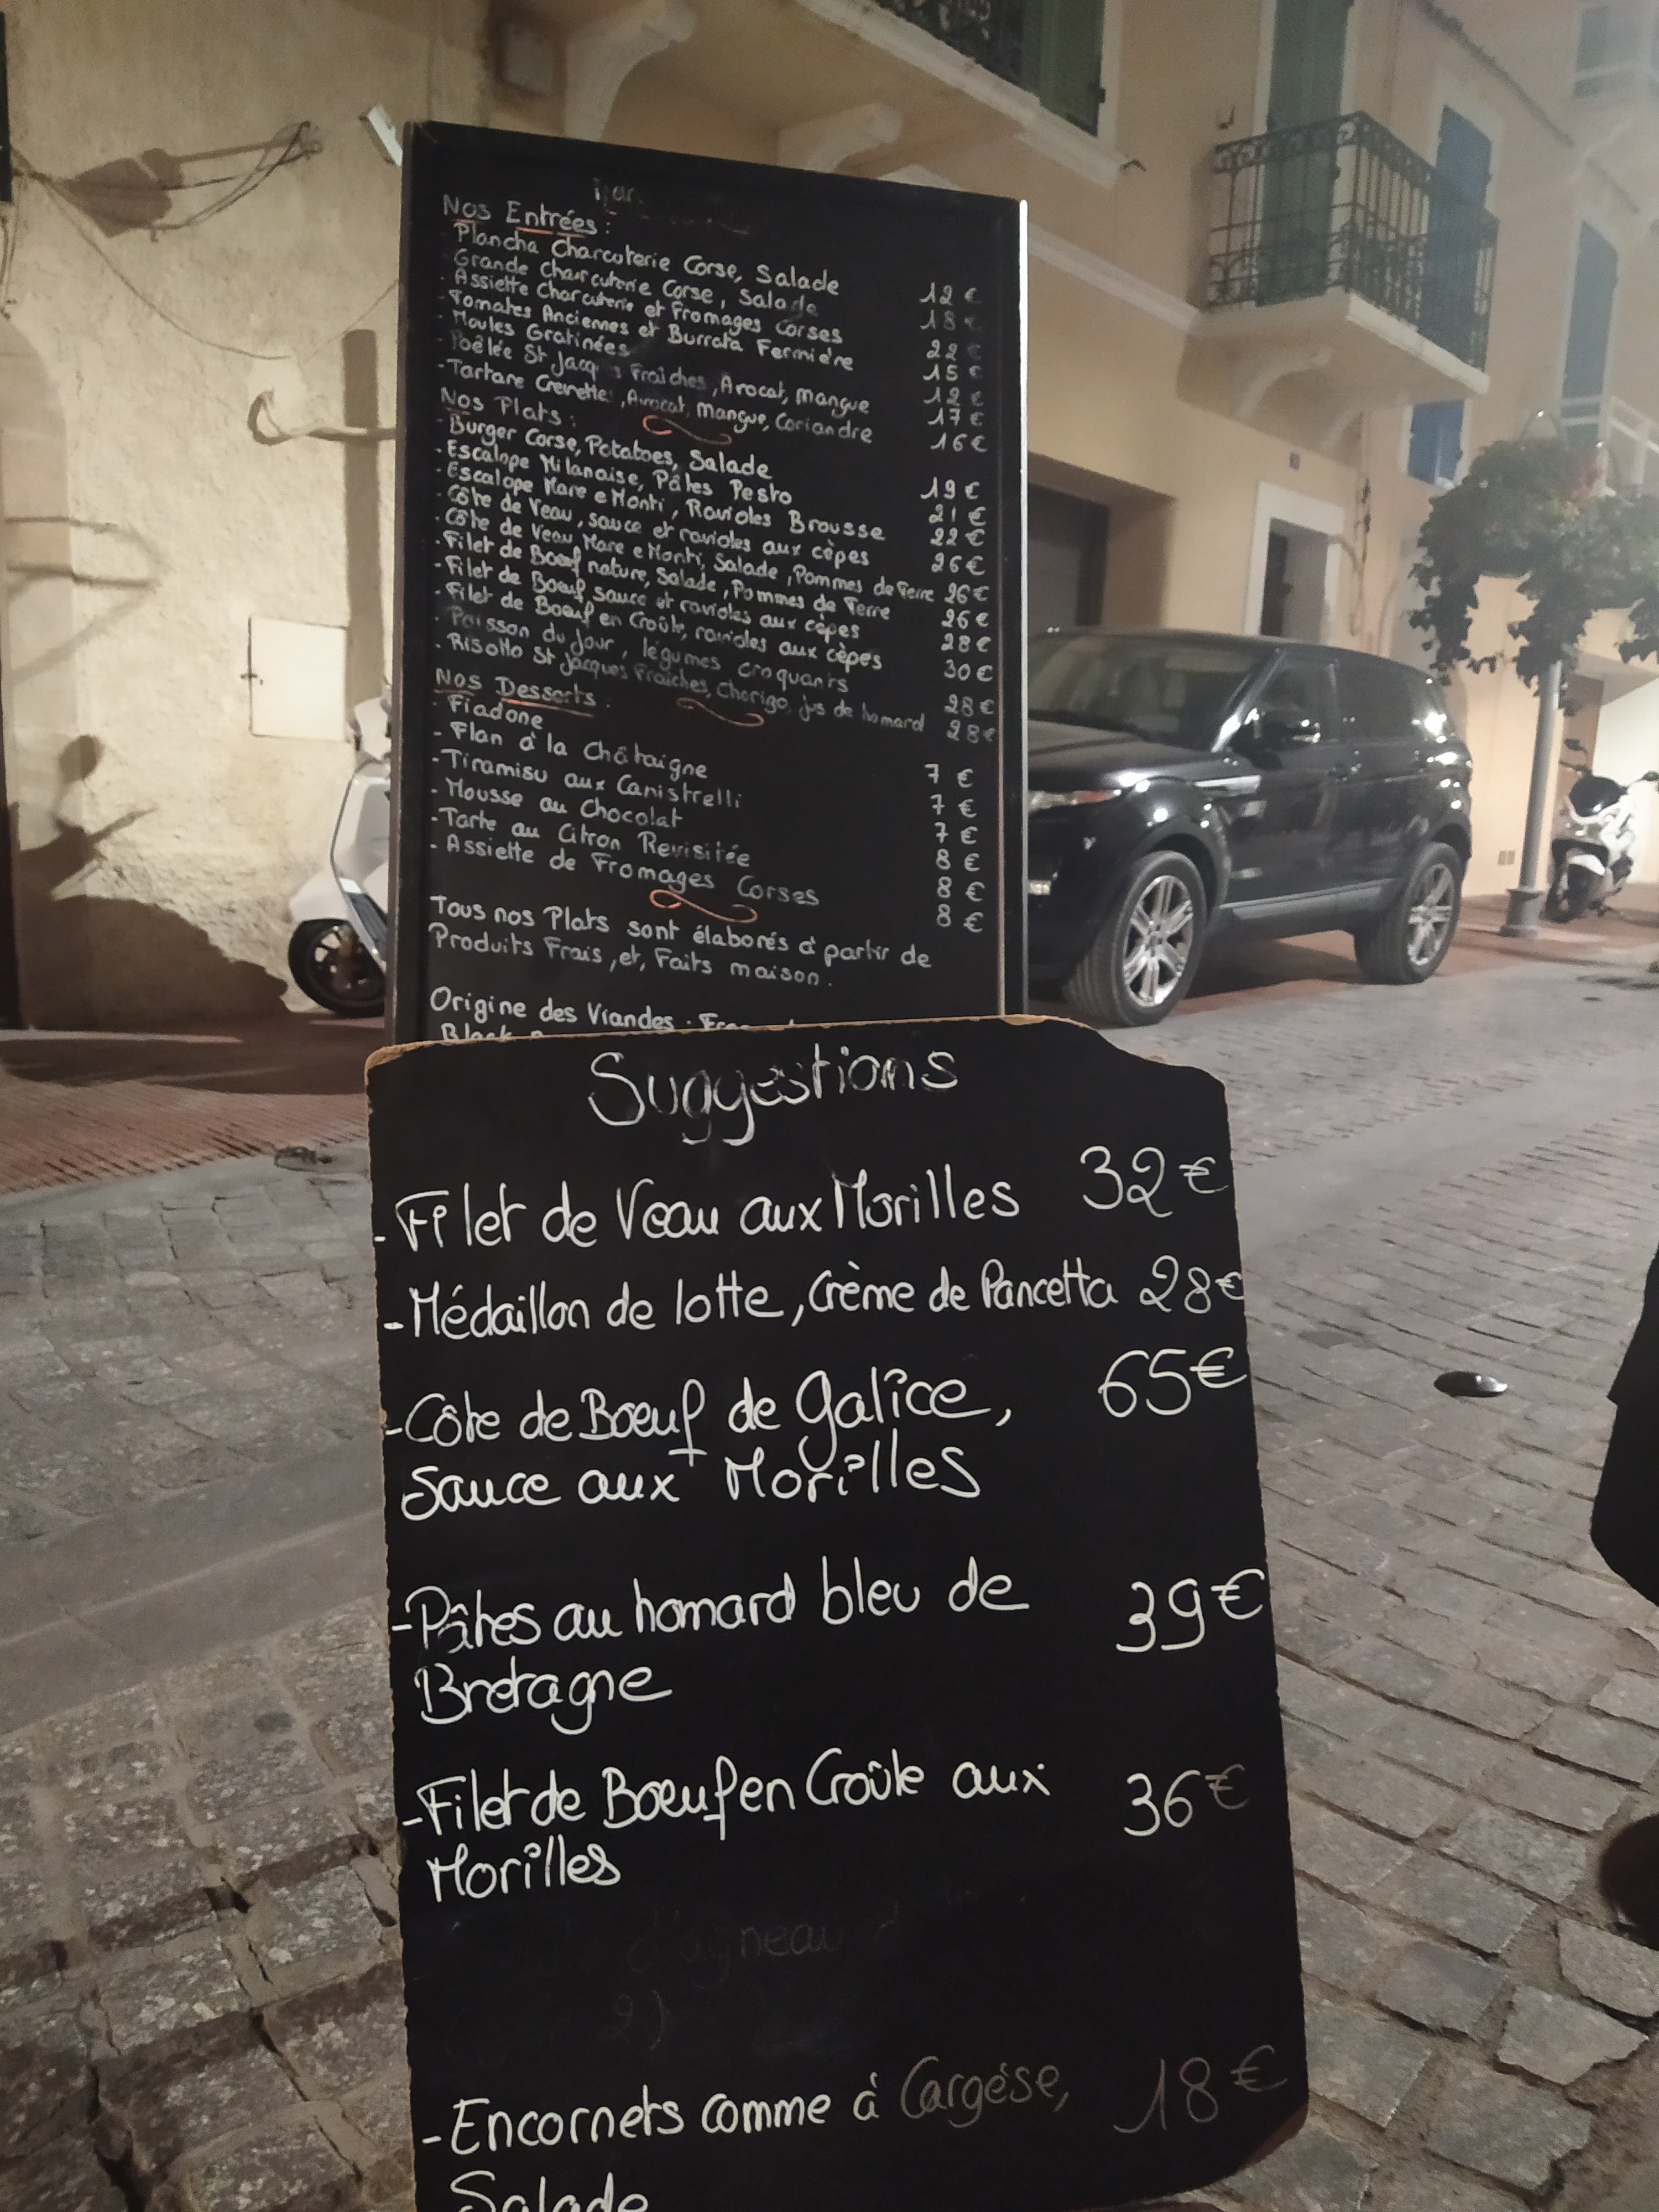 Nos Entrées :
- Plancha Charcuterie Corse, Salade 12 €
- Grande Charcuterie Corse, Salade 18 €
- Assiette Charcuterie et Fromages Corses 22 €
- Tomates Anciennes et Burrata Fermière 15 €
- Moules Gratinées 12 €
- Poêlée St Jacques Fraîches, Avocat, mangue 17 €
- Tartare Crevettes, Avocat, Mangue, Coriandre 16 €
Nos Plats :
- Burger Corse, Potatoes, Salade 19 €
- Escalope Milanaise, Pâtes Pesto 21 €
- Escalope Mare e Monti, Ravioles Brousse 22 €
- Côte de Veau, sauce et ravioles aux cèpes 26 €
- Côte de Veau Mare e Monti, Salade, Pommes de Terre 26 €
- Filet de Boeuf nature, Salade, Pommes de Terre 26 €
- Filet de Boeuf, sauce et ravioles aux cèpes 28 €
- Filet de Boeuf en Croûte, ravioles aux cèpes 30 €
- Poisson du Jour, légumes croquants 28 €
- Risotto St Jacques Fraîches, Chorizo, jus de homard 28 €
Nos Desserts :
- Fiadone 7 €
- Flan à la Châtaigne 7 €
- Tiramisu aux Canistrelli 7 €
- Mousse au Chocolat 8 €
- Tarte au Citron Revisitée 8 €
- Assiette de Fromages Corses 8 €
Tous nos Plats sont élaborés à partir de
Produits Frais, et, Faits maison.
Origine des Viandes :
Suggestions
- Filet de Veau aux Morilles 32 €
- Médaillon de lotte, Crème de Pancetta 28 €
- Côte de Boeuf de Galice, 65 €
Sauce aux Morilles
- Pâtes au homard bleu de 39 €
Bretagne
- Filet de Boeuf en Croûte aux 36 €
Morilles
d'agneau
- Encornets comme à Cargèse, 18 €
Salade